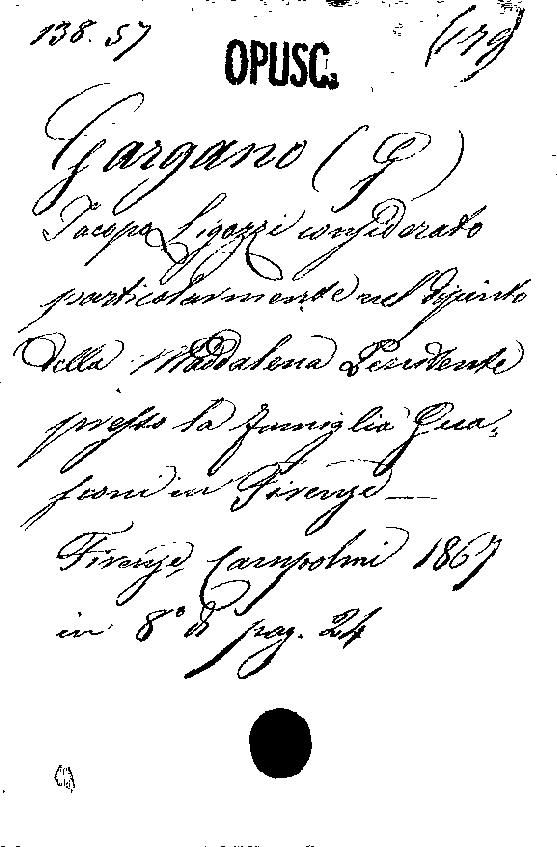 138.57
OPUSC.
(179)
Gargano (G)
Jacopo Ligozzi considerato
particolarmente nel dipinto
della Maddalena Penitente
presso la famiglia Gua-
sconi in Firenze —
Firenze, Campolmi 1867
in 8° di pag. 24